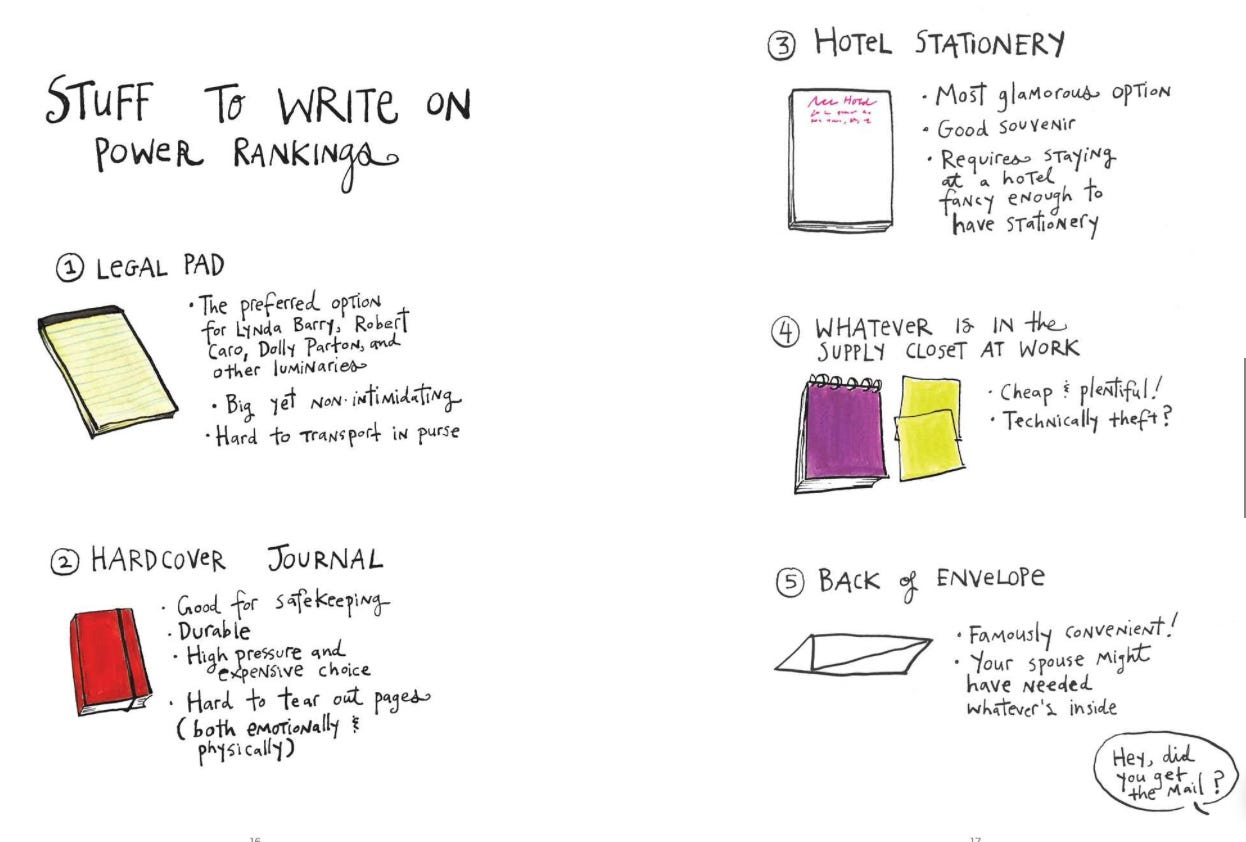 STUFF TO WRITE ON
POWER RANKINGS
1 LEGAL PAD
• The preferred option
for Lynda Barry, Robert
Caro, Dolly Parton, and
other luminaries
• Big yet non-intimidating
• Hard to transport in purse
2 HARDCOVER JOURNAL
• Good for safekeeping
• Durable
• High pressure and
expensive choice
• Hard to tear out pages
(both emotionally &
physically)
16
3 HOTEL STATIONERY
Hotel
• Most glamorous option
• Good souvenir
• Requires staying
at a hotel
fancy enough to
have stationery
4 WHATEVER IS IN the
SUPPLY CLOSET AT WORK
• Cheap & plentiful!
• Technically theft?
5 BACK of ENVELOPE
• Famously convenient!
• Your spouse might
have needed
whatever's inside
Hey, did
you get
the mail?
17